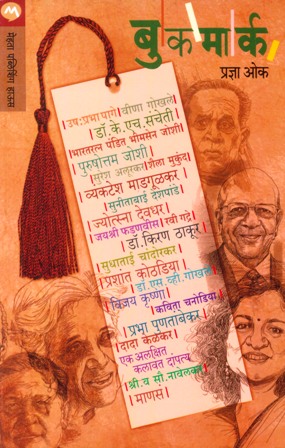 मेहता पब्लिशिंग हाऊस
बुकमार्क
प्रज्ञा ओक
उषःप्रभा पागे|वीणा गोखले|
डॉ.के.एच.संचेती
|भारतरत्न पंडित भीमसेन जोशी|
पुरुषोत्तम जोशी|
|सुरेश अलूरकर|शैला मुकुंद|
|व्यंकटेश माडगूळकर|
|सुनीताबाई देशपांडे|
|ज्योत्स्ना देवधर|
|जयश्री फडणवीस|रवी गद्रे|
|डॉ.किरण ठाकूर|
|सुधाताई चांदोरकर|
|प्रशांत कोठडिया|
|डॉ.एस.व्ही.गोखले|
|विजय कृष्णा|
|कविता चनोडिया|
|प्रभा पुणतांबेकर|
|दादा केळकर|
एक अलक्षित
कलावंत दांपत्य
श्री.व सौ.नावेलकर|
|माणसं|